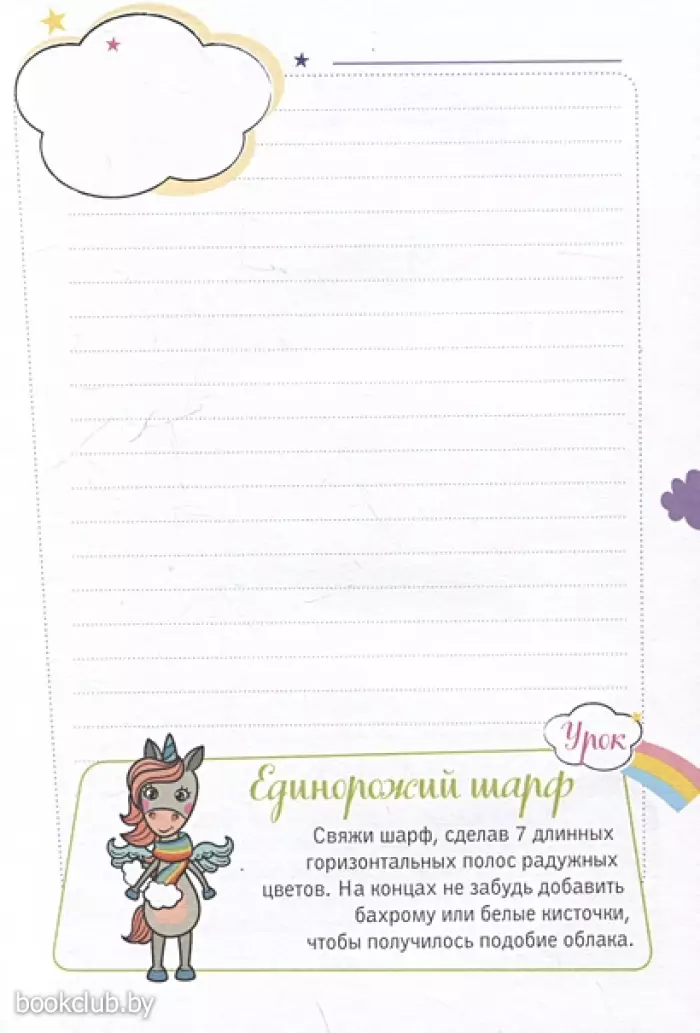 Урок
Единорожий шарф
Свяжи шарф, сделав 7 длинных
горизонтальных полос радужных
цветов. На концах не забудь добавить
бахрому или белые кисточки,
чтобы получилось подобие облака.
bookclub.by